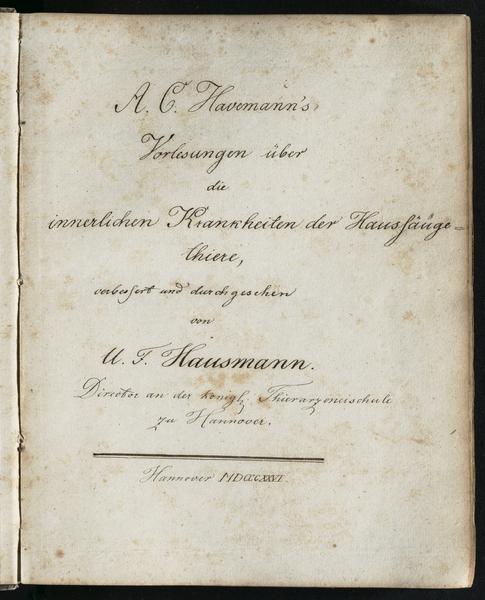 A. C. Havemann's
Vorlesungen über
die
innerlichen Krankheiten der Haussäuge-
thiere,
verbessert und durchgesehen
von
U. F. Hausmann.
Director an der königl. Thierarzneischule
zu Hannover.
Hannover MDCCCXXVI.